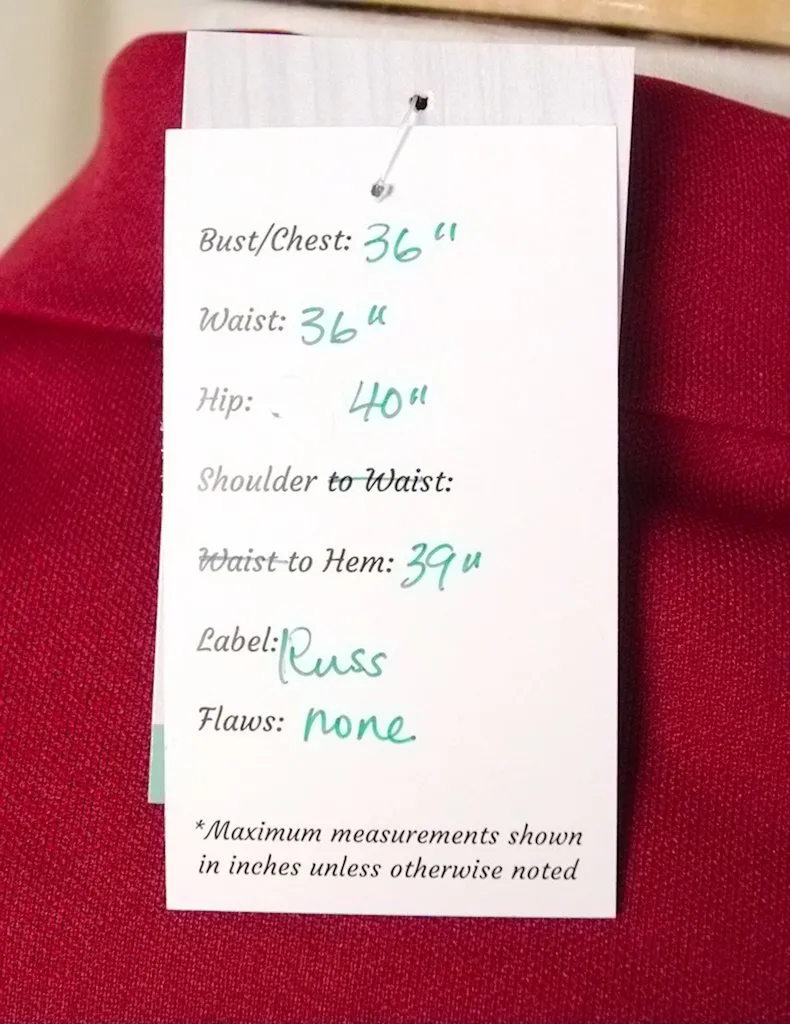 Bust/Chest: 36"
Waist: 36"
Hip: 40"
Shoulder to Waist:
Waist to Hem: 39"
Label: Russ
Flaws: none
*Maximum measurements shown
in inches unless otherwise noted